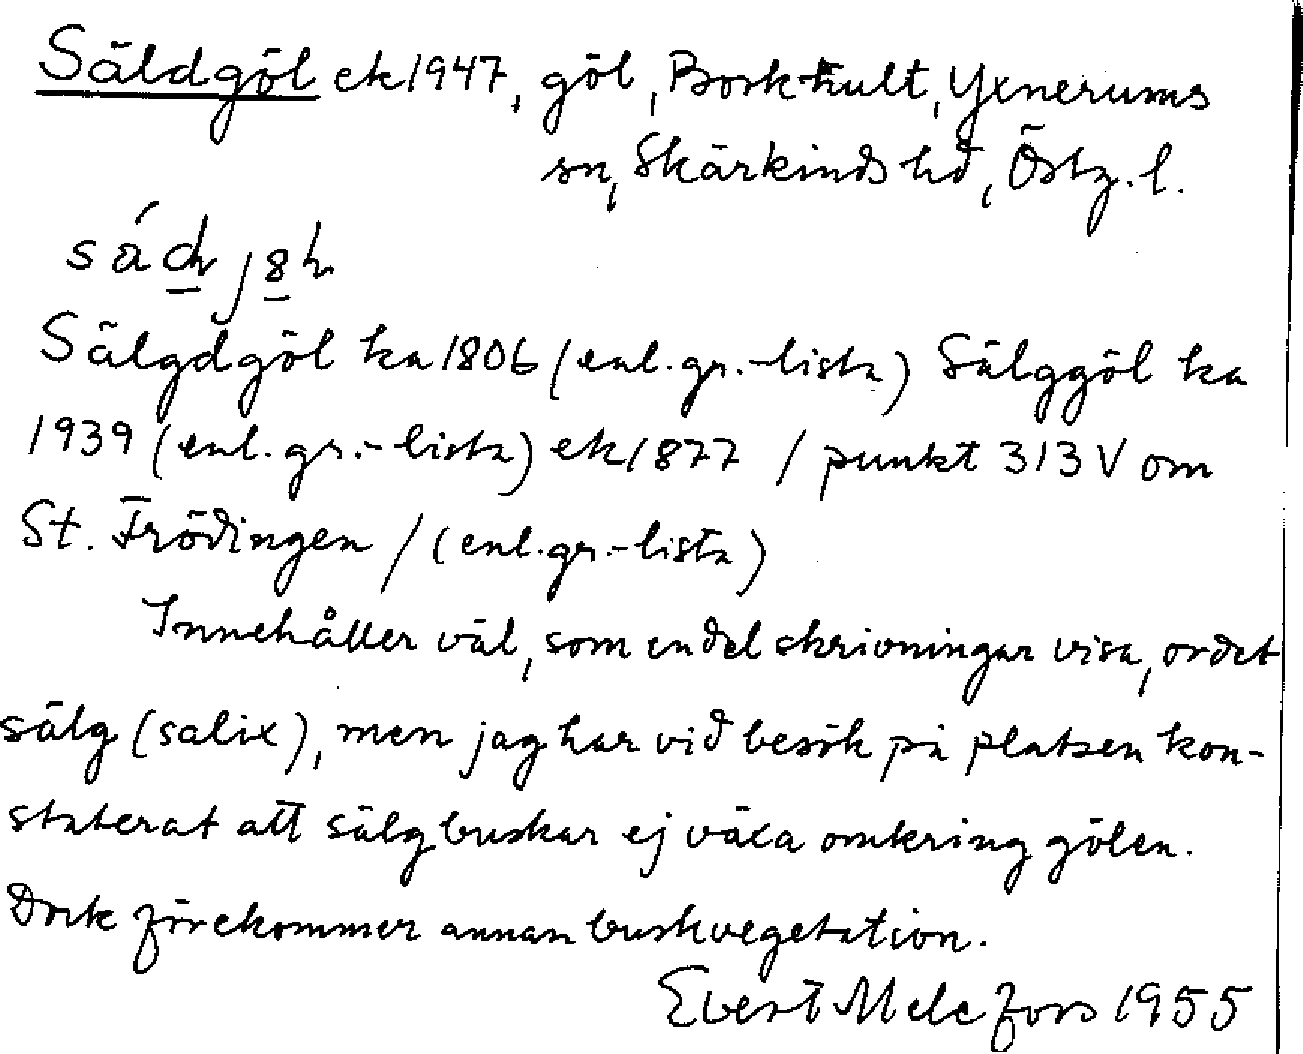 Säldgöl ek 1947, göl, Borkhult, Yxnerums
sn, Skärkinds hd, Östg.l.
Sälgdgöl ka 1806 (enl. gr.-lista) Sälggöl ka
1939 (enl. gr.-lista) ek 1877 / punkt 313 V om
St. Frödingen / (enl. gr.-lista)
Innehåller väl, som en del skrivningar visa, ordet
sälg (salix), men jag har vid besök på platsen kon-
staterat att sälgbuskar ej växa omkring gölen.
Dock förekommer annan buskvegetation.
Evert Melefors 1955